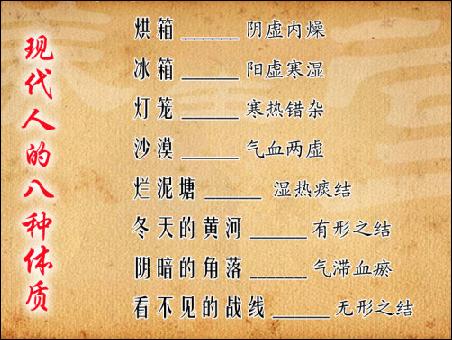 现代人的八种体质
烘箱______阴虚内燥
冰箱______阳虚寒湿
灯笼______寒热错杂
沙漠______气血两虚
烂泥塘______湿热痰结
冬天的黄河______有形之结
阴暗的角落______气滞血瘀
看不见的战线______无形之结